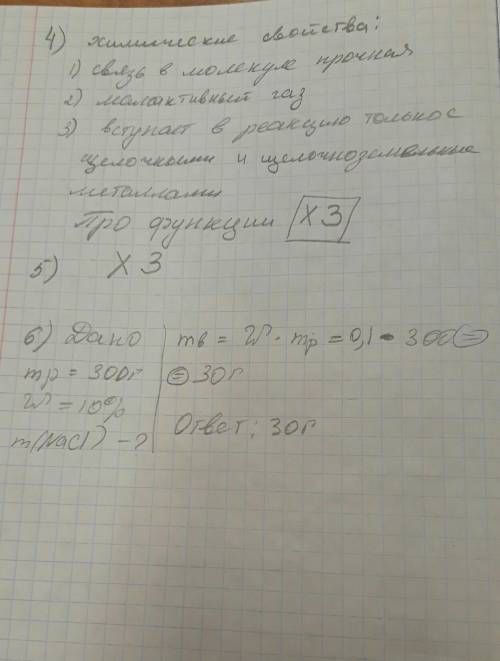 4) химические свойства:
1) связь в молекуле прочная
2) малоактивный газ
3) вступает в реакцию только с
щелочными и щелочноземельные
металлами
Про функции ХЗ
5) ХЗ
6) Дано
mр = 300г
W = 10%
m(NaCl) - ?
mв = W · mр = 0,1 · 300 =
= 30г
Ответ: 30г